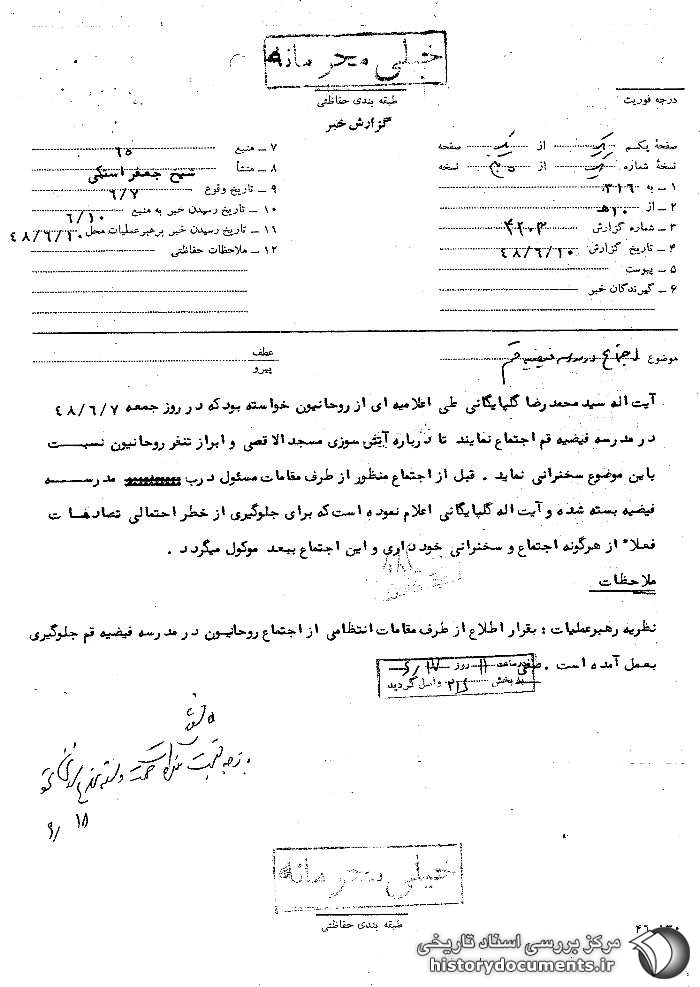 خیلی محرمانه
طبقه بندی حفاظتی
درجه فوریت
گزارش خبر
صفحهٔ یکم یک از یک صفحه
نسخهٔ شماره از نسخه
۱ ــ به ۳۱۶
۲ ــ از ۱۰ ه‍
۳ ــ شماره گزارش ۴۲۰۳
۴ ــ تاریخ گزارش ۴۸/۶/۱۰
۵ ــ پیوست
۶ ــ گیرندگان خبر
۷ ــ منبع ۶۵
۸ ــ منشأ شیخ جعفر
۹ ــ تاریخ وقوع ۶/۷
۱۰ ــ تاریخ رسیدن خبر به منبع ۶/۱۰
۱۱ ــ تاریخ رسیدن خبر برهبر عملیات محل ۴۸/۶/۱۰
۱۲ ــ ملاحظات حفاظتی
موضوع اجتماع در مدرسه فیضیه قم
عطف
پیرو
آیت اله سید محمد رضا گلپایگانی طی اعلامیه ای از روحانیون خواسته بود که در روز جمعه ۴۸/۶/۷
در مدرسه فیضیه قم اجتماع نمایند تا درباره آتش سوزی مسجد الاقصی و ابراز تنفر روحانیون نسبت
باین موضوع سخنرانی نماید . قبل از اجتماع منظور از طرف مقامات مسئول درب مدرسه
فیضیه بسته شده و آیت اله گلپایگانی اعلام نموده است که برای جلوگیری از خطر احتمالی تصادهات
فعلاً از هرگونه اجتماع و سخنرانی خودداری و این اجتماع ببعد موکول میگردد .
ملاحظات
نظریه رهبر عملیات : بقرار اطلاع از طرف مقامات انتظامی از اجتماع روحانیون در مدرسه فیضیه قم جلوگیری
بعمل آمده است .
ساعت ۱۱ روز
به بخش ۳۱۶ واصل گردید
۶/۱۸
خیلی محرمانه
طبقه بندی حفاظتی
مرکز بررسی اسناد تاریخی
historydocuments.ir